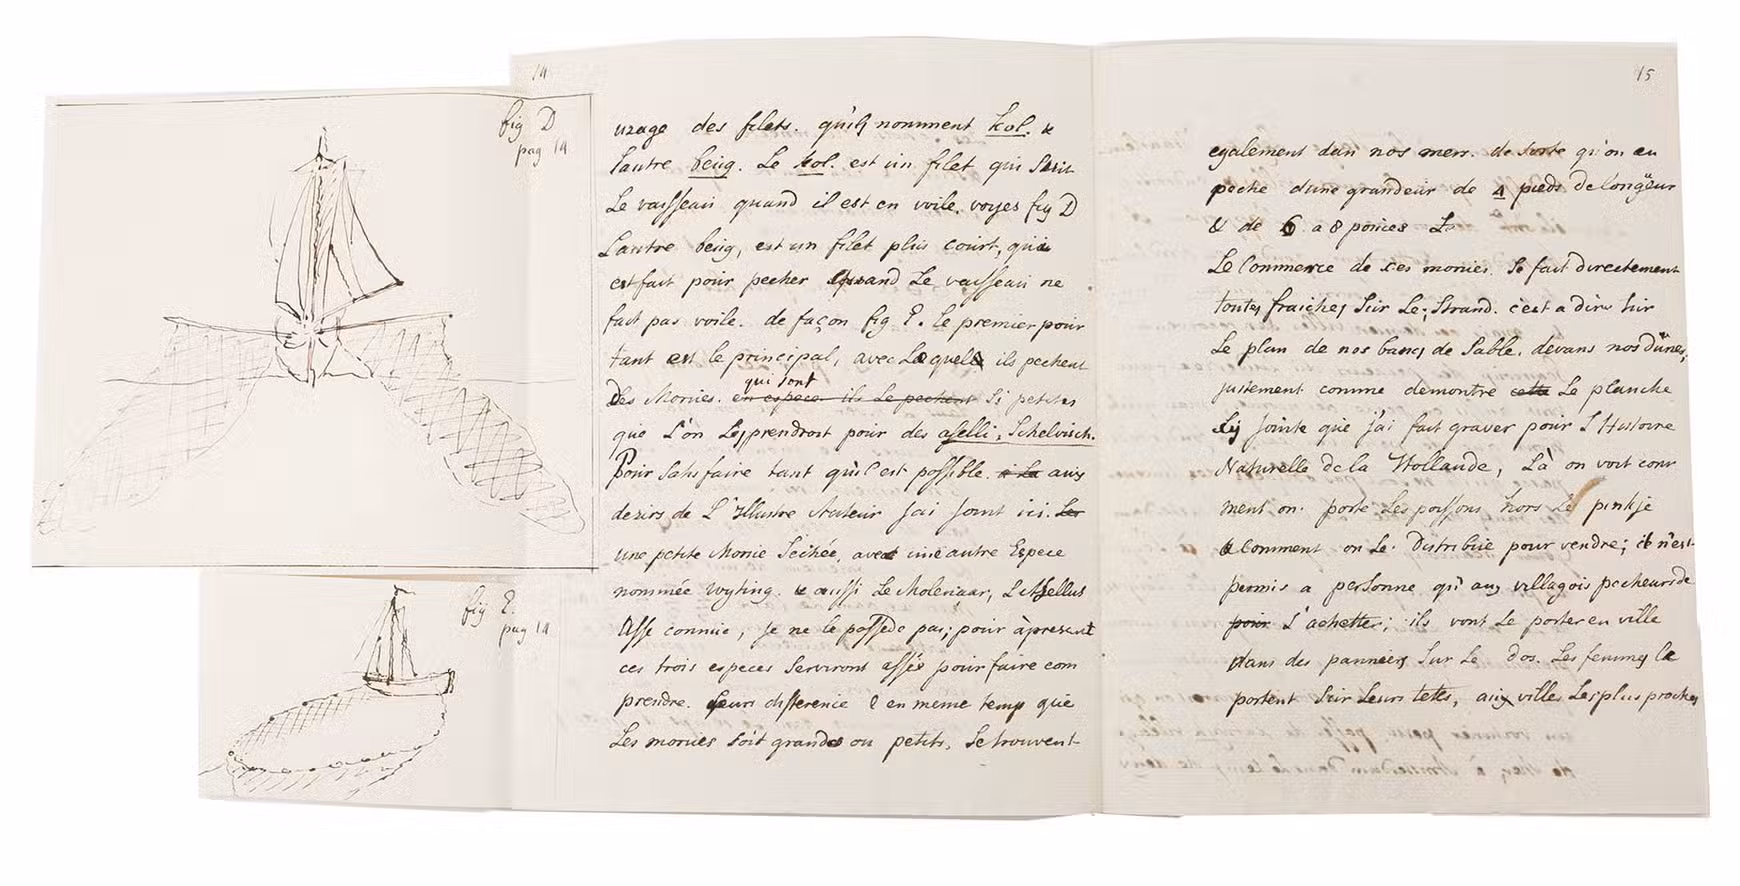 fig D
pag 14
fig E.
pag 14
14
uzage des filets. qu'ils nomment kol. &
l'autre beug. Le kol. est un filet qui suit
Le vaisseau quand il est en voile. voyes fig D
L'autre beug, est un filet plus court, qui
est fait pour pecher quand Le vaisseau ne
fait pas voile. de façon fig E. le premier pour
tant est le principal, avec Lequel ils pechent
Des Morues. en espece ils Le pechent si petites
qui sont
que L'on Les prendroit pour des aselli, Schelvisch.
Pour satisfaire tant qu'il est possible. à La aux
desirs de L'Illustre Auteur J'ai joint ici. Les
une petite Morue Seichée, avec une autre Espece
nommée Wyting. & aussi Le Molenaar, L'Asellus
Asse connue, je ne le possede pas; pour àpresent
ces trois especes Serviront assés pour faire com
prendre. Leurs difference & en meme temp que
Les morues soit grandes ou petits, Se trouvent
15
egalement dan nos mers. de sorte qu'on en
peche d'une grandeur de 4 pieds de longueur
& de 6 a 8 pouces
Le Commerce de ces morues. Se fait directement
toutes fraiches Sur Le Strand. c'est a dire Sur
Le plan de nos bancs de Sable. devans nos dunes,
justement comme demontre cette Le planche
cy jointe que j'ai fait graver pour L'Histoire
Naturelle de la Hollande, Là on voit com
ment on. porte Les poissons hors Le pinkje
& Comment on Le. Distribue pour vendre; il n'est
permis a personne qu'aux villagois pecheurs de
pour L'achetter; ils vont Le porter en ville
dans des panniers Sur Le dos. Les femmes le
portent Sur Leurs tetes, aux villes Les plus proches